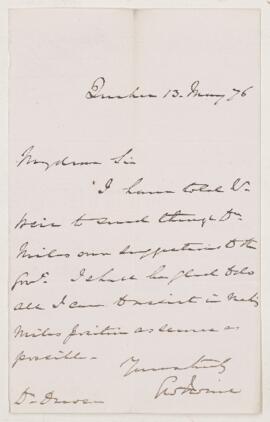 Quebec 13. May 76
My dear Sir
I have told W.
Weir to send through Dr.
Miles own suggestions to the
Govt. I shall be glad to do
all I can to assist in making
Miles position as secure as
possible.
Yours truly
Geo Irvine
Dr. Dawson